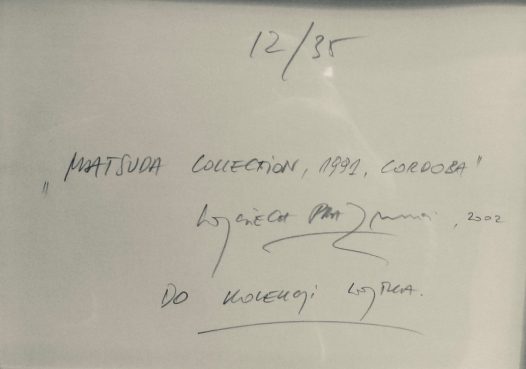 12/35
„MATSUDA COLLECTION, 1991, CORDOBA"
Wojciech Prażmowski, 2002
DO KOLEKCJI WOJTKA.